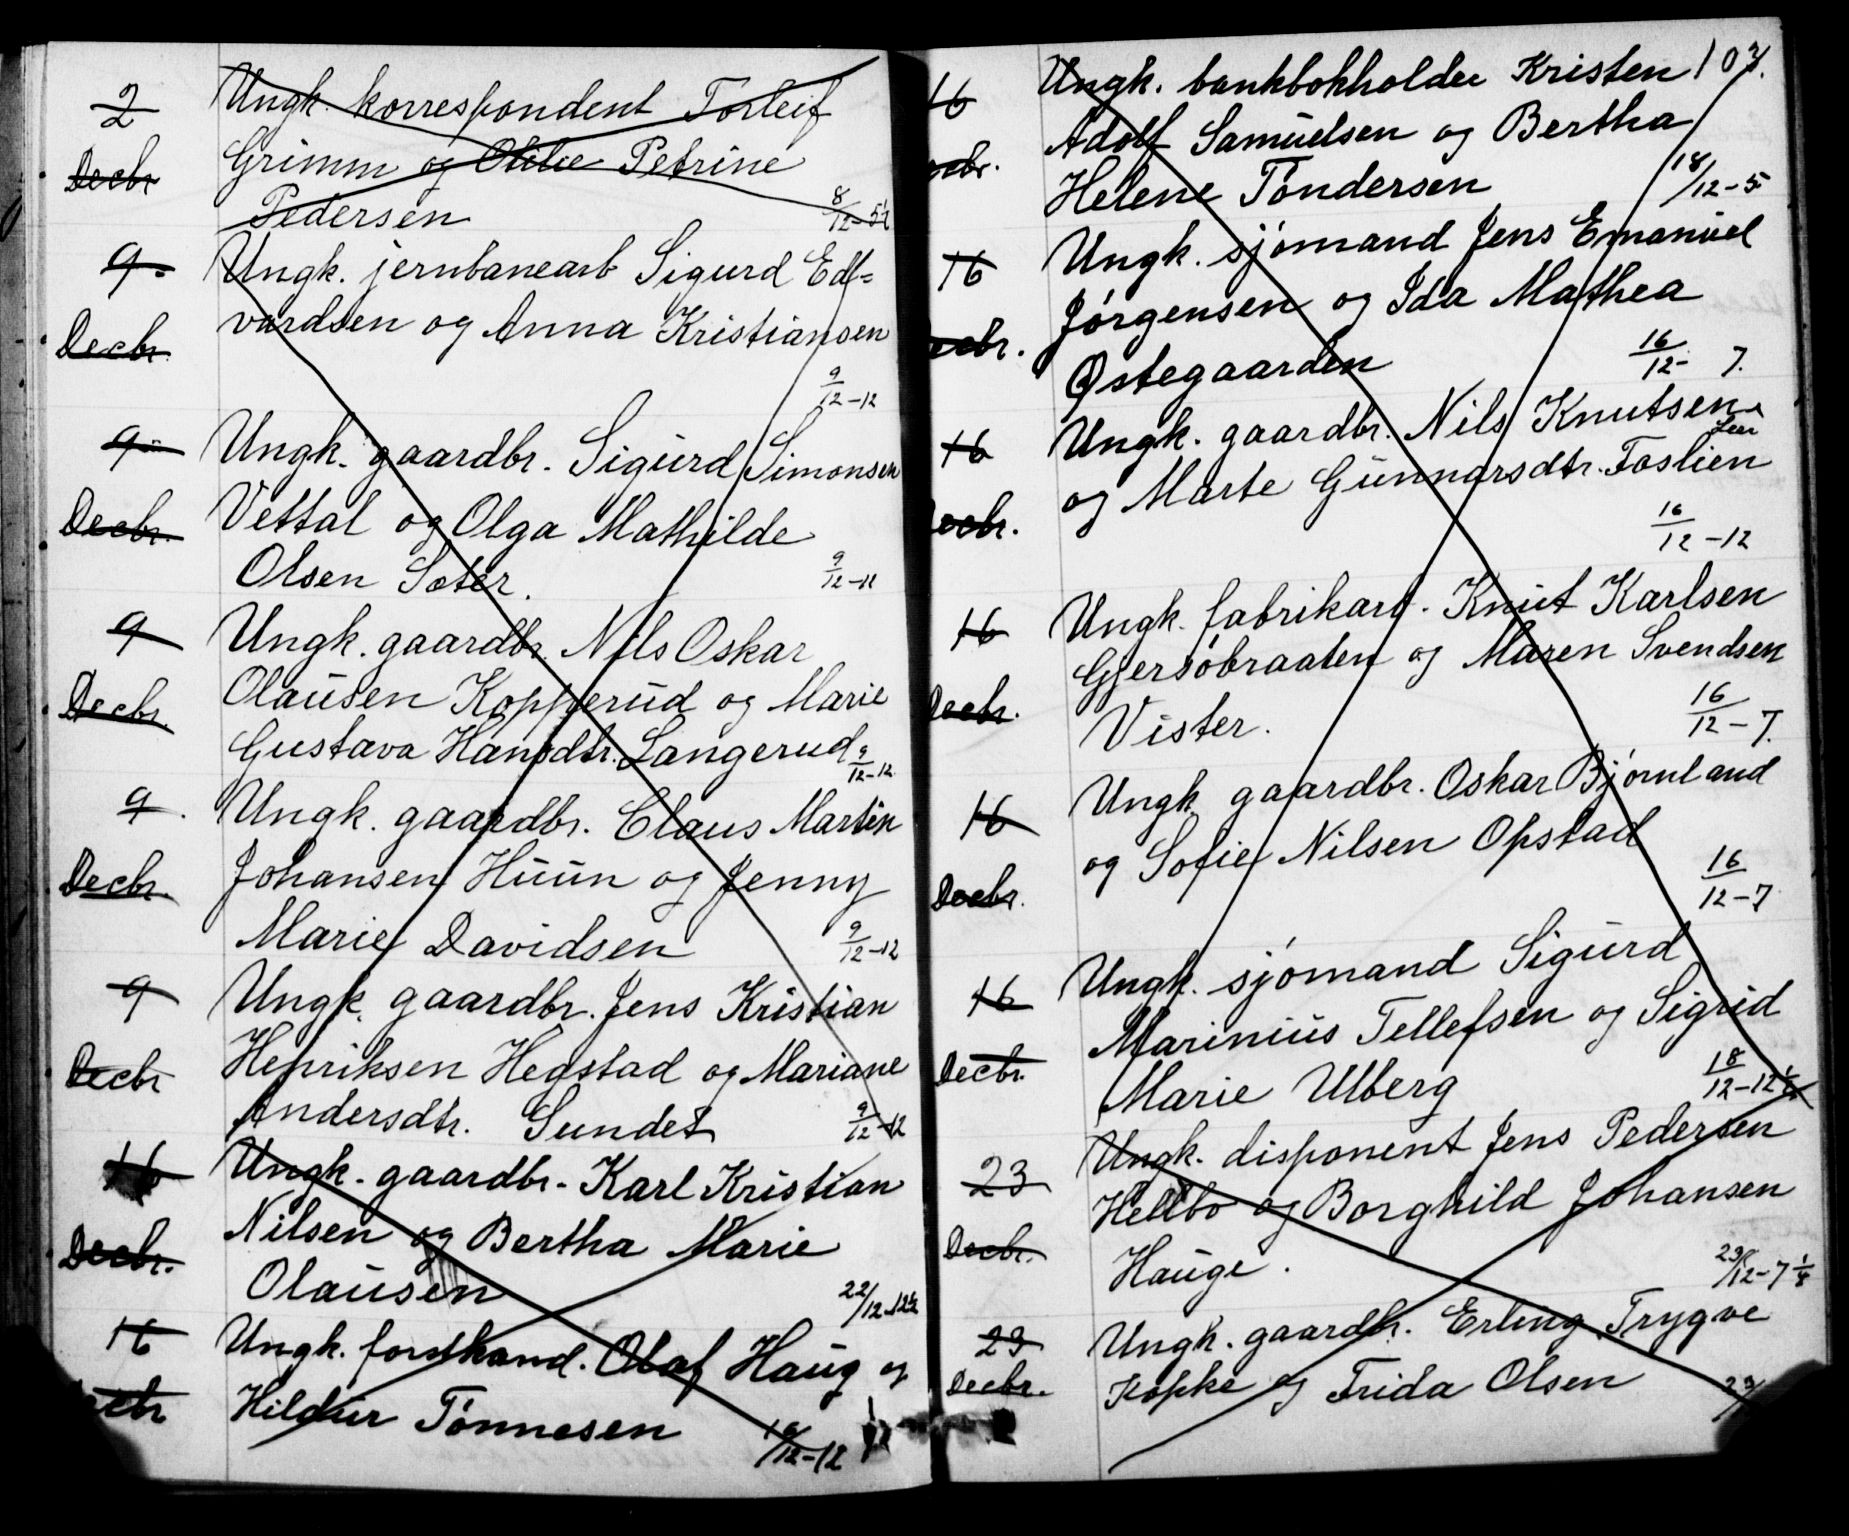 2 Ungk. korrespondent Torleif
Decbr Grimm og Petrine
Pedersen 8/12-5½
9. Ungk. jernbanearb Sigurd Ed=
Decbr. vardsen og Anna Kristiansen
9/12-12
9 Ungk. gaardbr. Sigurd Simonsen
Decbr. Vettal og Olga Mathilde
Olsen Sæter. 9/12-12
9 Ungk. gaardbr. Nils Oskar
Decbr. Olausen Kopperud og Marie
Gustava Hansdtr. Langerud 9/12-12
9. Ungk. gaardbr. Claus Martin
Decbr. Johansen Huun og Jenny
Marie Davidsen 9/12-12
9 Ungk. gaardbr. Jens Kristian
Decbr Henriksen Hegstad og Mariane
Andersdtr. Sundet 9/12-12
16 Ungk. gaardbr. Karl Kristian
Decbr. Nilsen og Bertha Marie
Olausen 22/12-12½
16 Ungk. forstkand. Olaf Haug og
Decbr Hildur Tönnesen
16/12-12
103.
16 Ungk. bankbokholder Kristen
Decbr. Adolf Samuelsen og Bertha
Helene Töndersen 18/12-5
16 Ungk. sjömand Jens Emanuel
Decbr. Jörgensen og Ida Mathea
Østegaarden 16/12-7.
16 Ungk. gaardbr. Nils Knutsen
og Marte Gunnarsdtr. Foslien
Decbr. 16/12-12
16 Ungk. fabrikarb. Knut Karlsen
Gjersöbraaten og Maren Svendsen
Decbr. Vister. 16/12-7.
16 Ungk. gaardbr. Oskar Bjørnland
og Sofie Nilsen Opstad
Decbr. 16/12-7
16 Ungk. sjömand Sigurd
Marinius Tellefsen og Sigrid
Decbr. Marie Ulberg 18/12-12½
23 Ungk. disponent Jens Pedersen
Hellbo og Borghild Johansen
Decbr. Hauge. 23/12-7¼
23 Ungk. gaardbr. Erling Trygve
Decbr. Köpke og Frida Olsen 23/